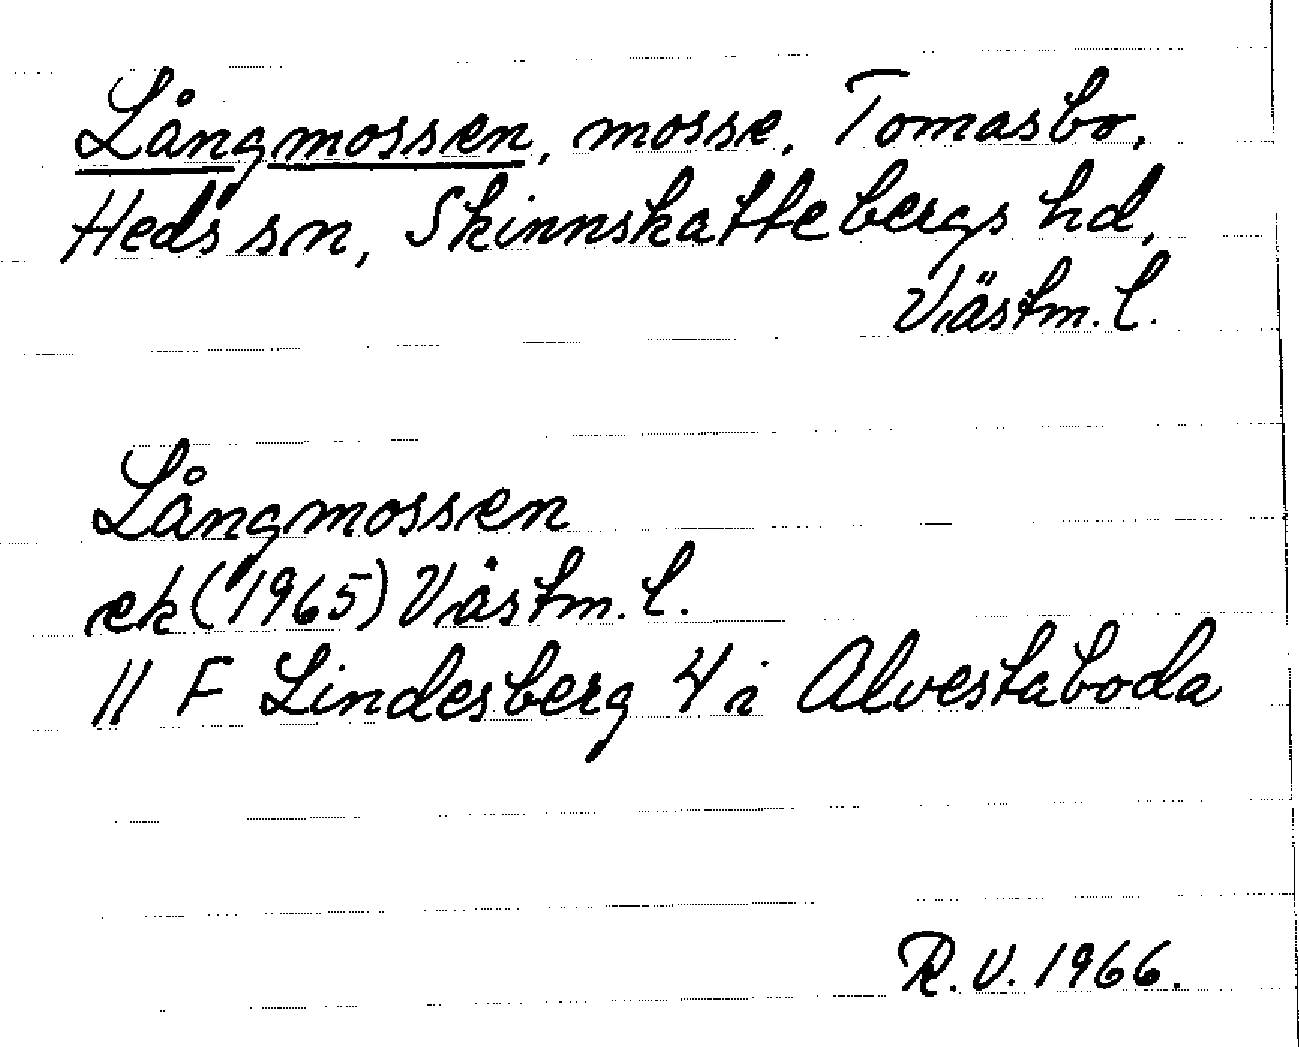 Långmossen, mosse, Tomasbo,
Heds sn, Skinnskattebergs hd,
Västm. l.
Långmossen
ek (1965) Västm. l.
11 F Lindesberg 4 i Alvestaboda
R.V. 1966.